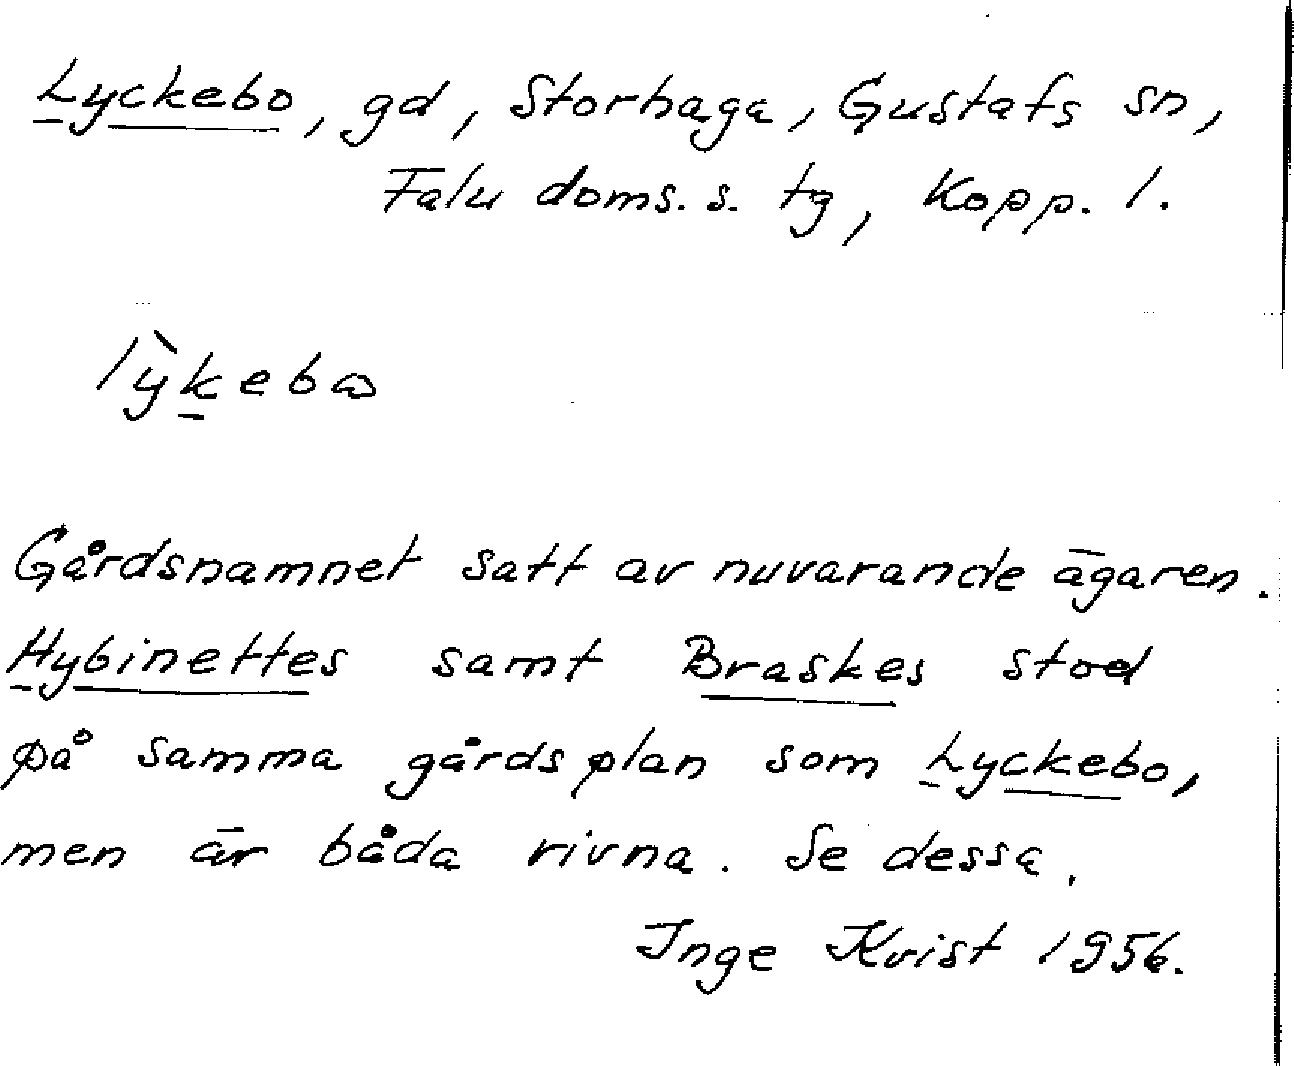 Lyckebo, gd, Storhaga, Gustafs sn,
Falu doms. s. tg, Kopp. l.
lỳkebω
Gårdsnamnet satt av nuvarande ägaren.
Hybinettes samt Braskes stod
på samma gårdsplan som Lyckebo,
men är båda rivna. Se dessa.
Inge Kvist 1956.